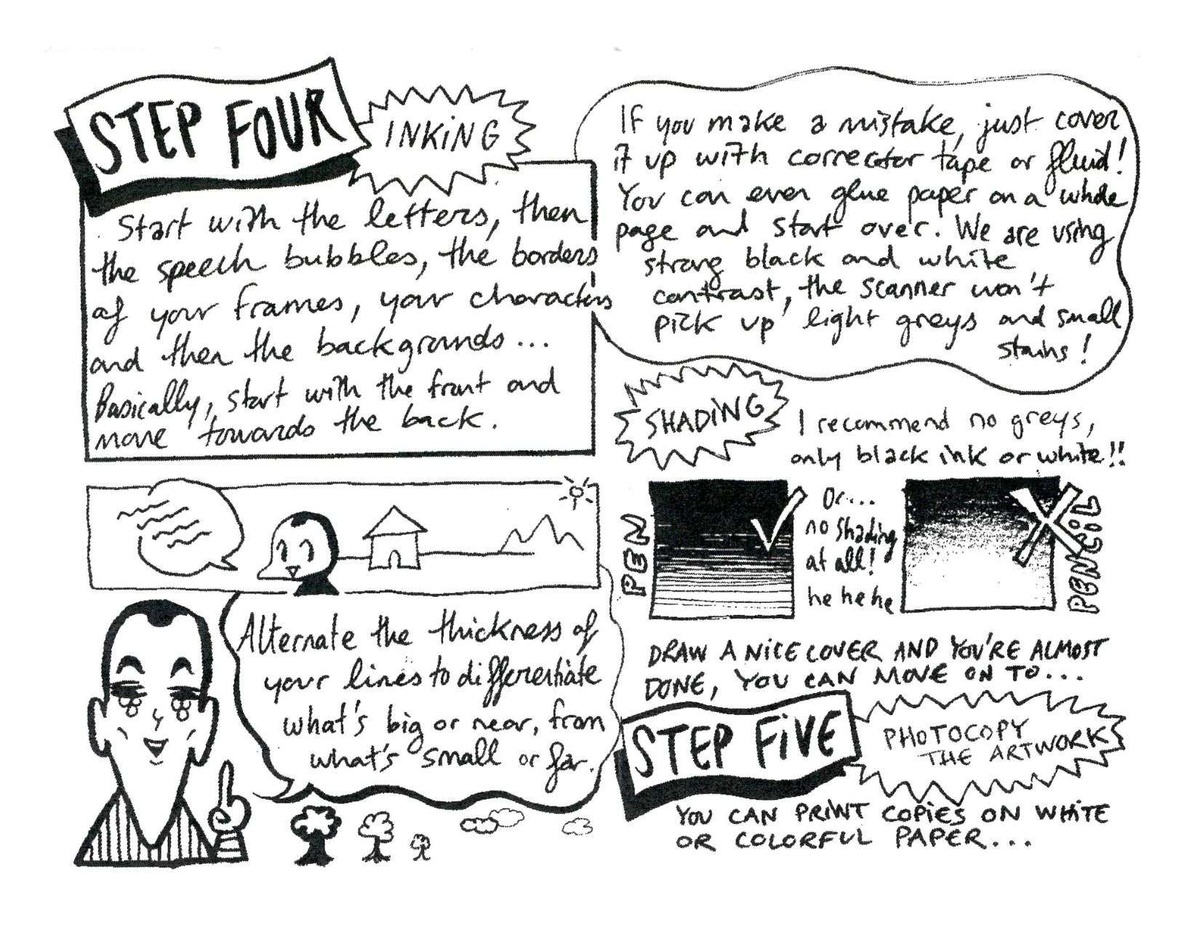 STEP FOUR
INKING
Start with the letters, then
the speech bubbles, the borders
of your frames, your characters
and then the backgrounds...
Basically, start with the front and
move towards the back.
If you make a mistake, just cover
it up with corrector tape or fluid!
You can even glue paper on a whole
page and start over. We are using
strong black and white
contrast, the scanner won't
pick up light greys and small
stains!
SHADING
I recommend no greys,
only black ink or white!!
PEN
Or...
no shading
at all!
he he he
PENCIL
Alternate the thickness of
your lines to differentiate
what's big or near, from
what's small or far.
DRAW A NICE COVER AND YOU'RE ALMOST
DONE, YOU CAN MOVE ON TO...
STEP FIVE
PHOTOCOPY
THE ARTWORK
YOU CAN PRINT COPIES ON WHITE
OR COLORFUL PAPER...